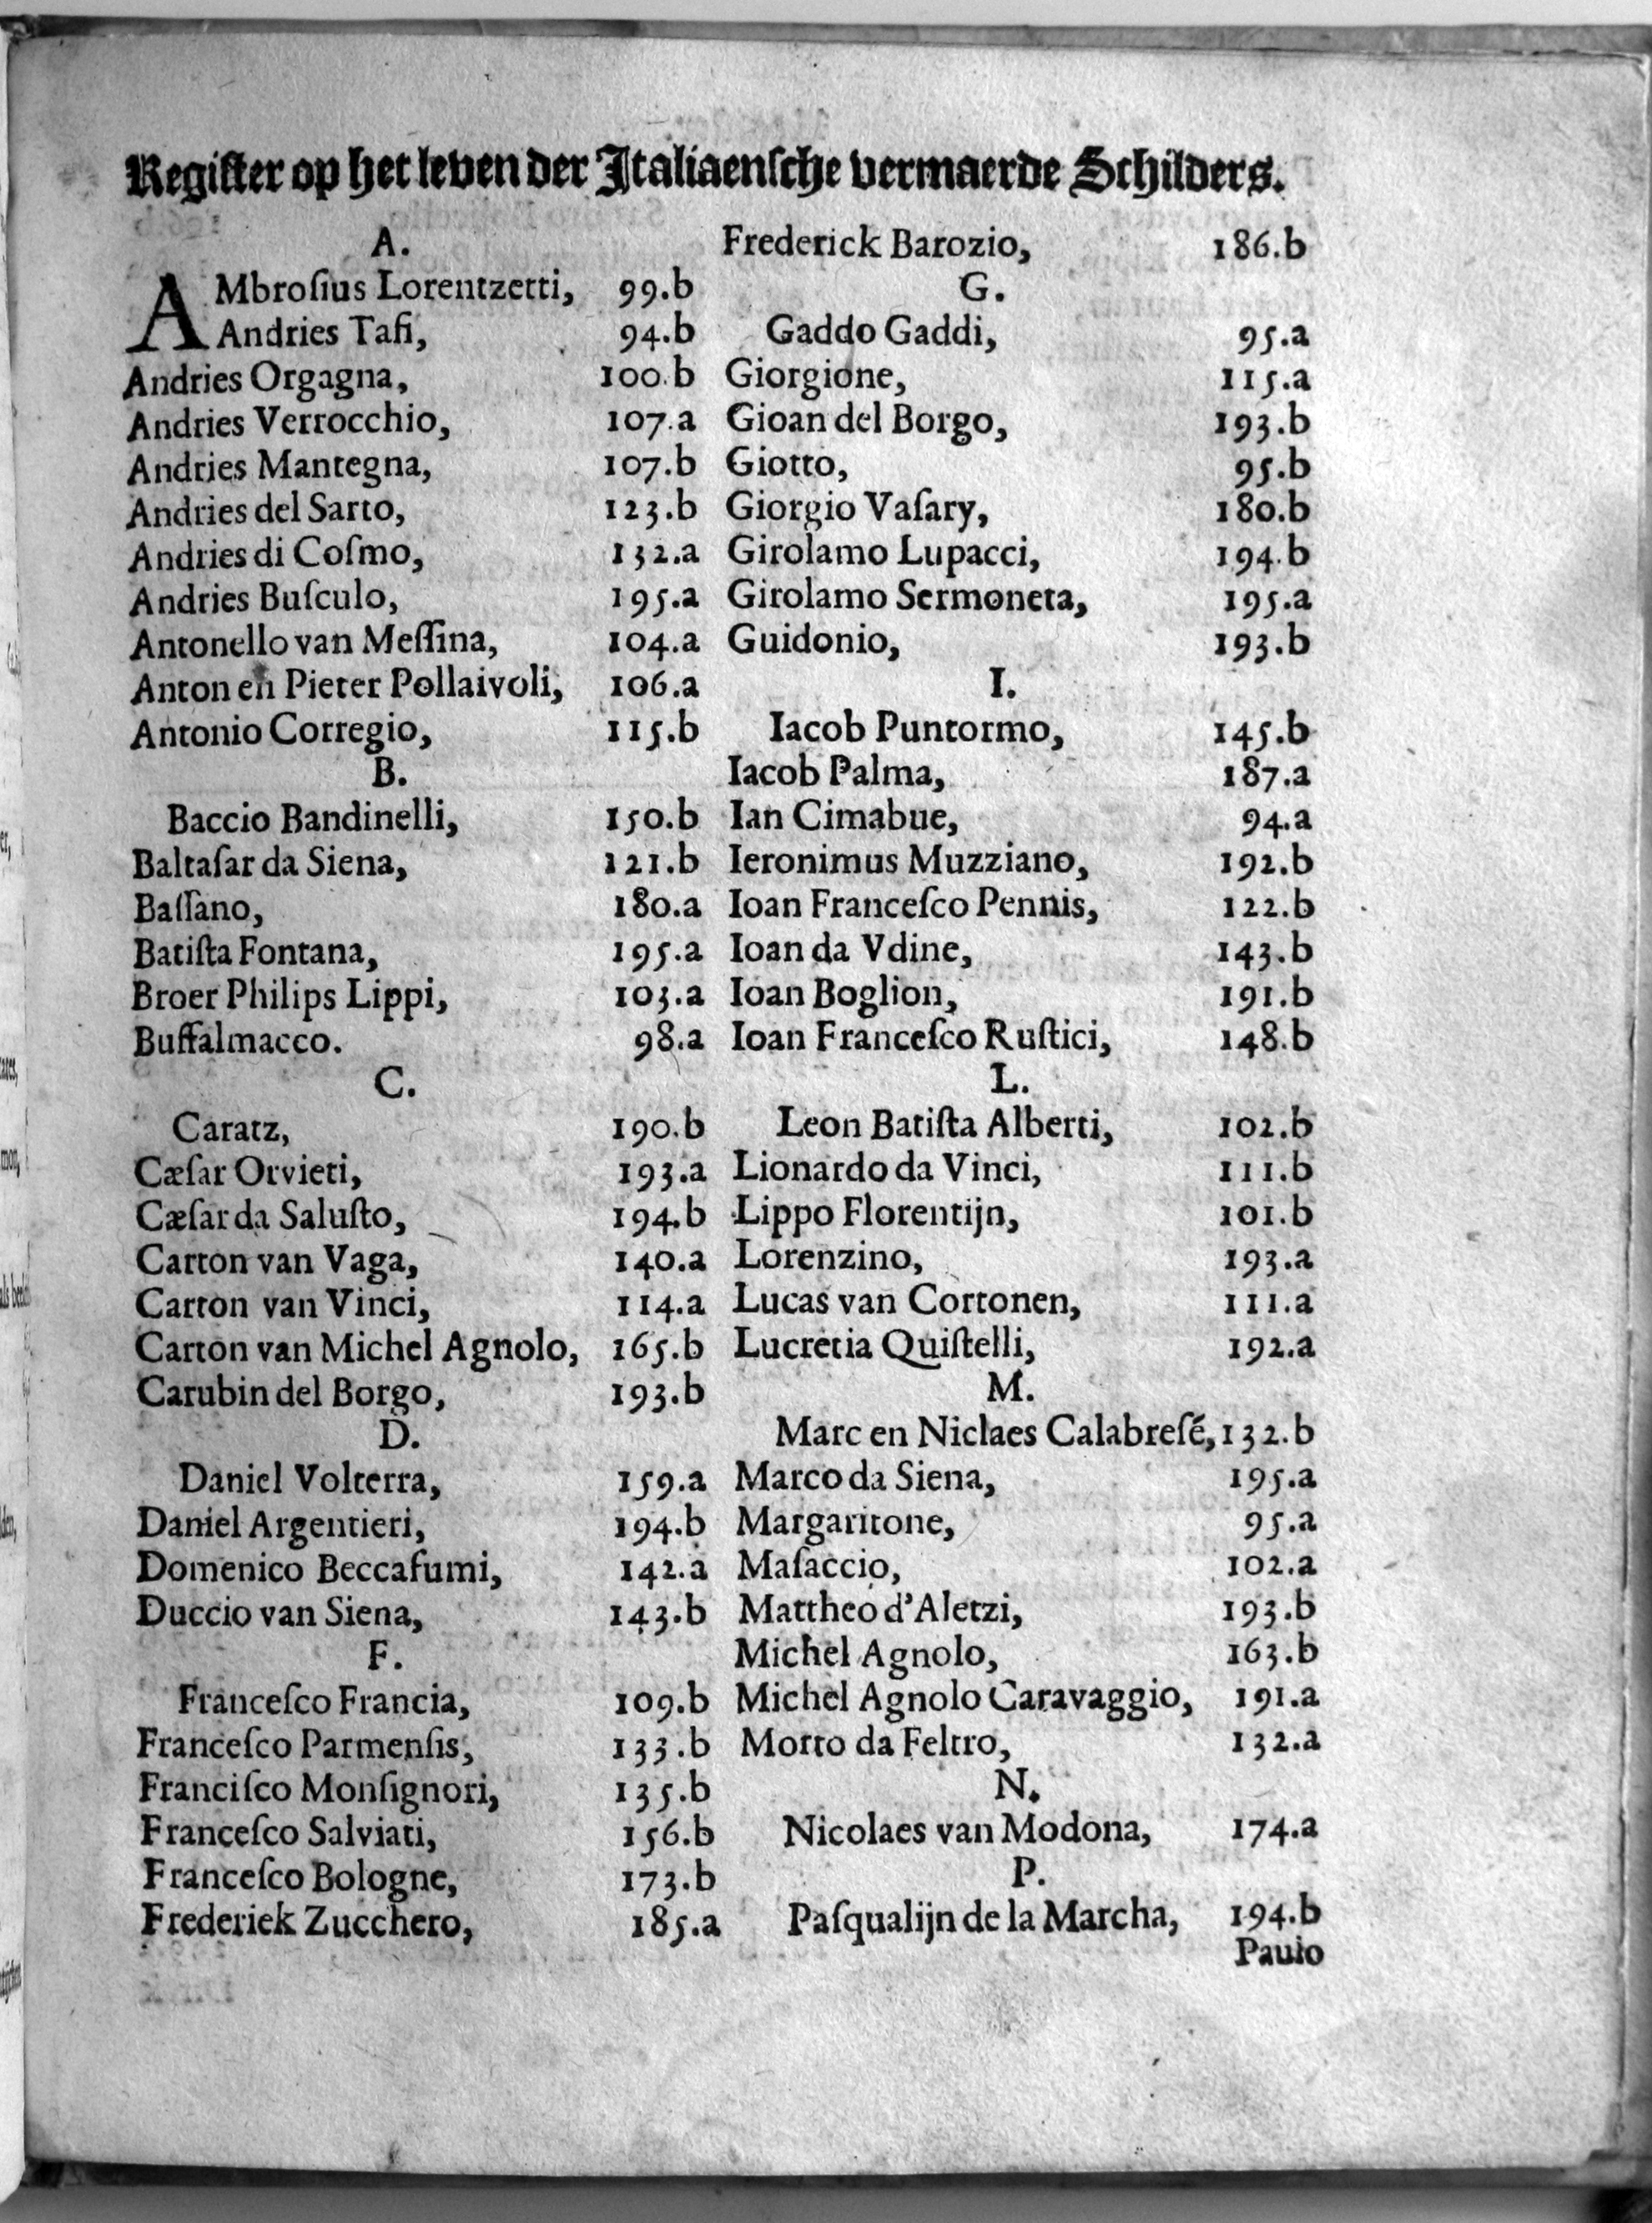 Regiſter op het leven der Italiaenſche vermaerde Schilders.
A.
AMbroſius Lorentzetti, 99.b
Andries Tafi, 94.b
Andries Orgagna, 100.b
Andries Verrocchio, 107.a
Andries Mantegna, 107.b
Andries del Sarto, 123.b
Andries di Coſmo, 132.a
Andries Buſculo, 195.a
Antonello van Meſſina, 104.a
Anton en Pieter Pollaivoli, 106.a
Antonio Corregio, 115.b
B.
Baccio Bandinelli, 150.b
Baltaſar da Siena, 121.b
Baſſano, 180.a
Batiſta Fontana, 195.a
Broer Philips Lippi, 103.a
Buffalmacco. 98.a
C.
Caratz, 190.b
Cæſar Orvieti, 193.a
Cæſar da Saluſto, 194.b
Carton van Vaga, 140.a
Carton van Vinci, 114.a
Carton van Michel Agnolo, 165.b
Carubin del Borgo, 193.b
D.
Daniel Volterra, 159.a
Daniel Argentieri, 194.b
Domenico Beccafumi, 142.a
Duccio van Siena, 143.b
F.
Franceſco Francia, 109.b
Franceſco Parmenſis, 133.b
Franciſco Monſignori, 135.b
Franceſco Salviati, 156.b
Franceſco Bologne, 173.b
Frederiek Zucchero, 185.a
Frederick Barozio, 186.b
G.
Gaddo Gaddi, 95.a
Giorgione, 115.a
Gioan del Borgo, 193.b
Giotto, 95.b
Giorgio Vaſary, 180.b
Girolamo Lupacci, 194.b
Girolamo Sermoneta, 195.a
Guidonio, 193.b
I.
Iacob Puntormo, 145.b
Iacob Palma, 187.a
Ian Cimabue, 94.a
Ieronimus Muzziano, 192.b
Ioan Franceſco Pennis, 122.b
Ioan da Vdine, 143.b
Ioan Boglion, 191.b
Ioan Franceſco Ruſtici, 148.b
L.
Leon Batiſta Alberti, 102.b
Lionardo da Vinci, 111.b
Lippo Florentijn, 101.b
Lorenzino, 193.a
Lucas van Cortonen, 111.a
Lucretia Quiſtelli, 192.a
M.
Marc en Niclaes Calabreſé, 132.b
Marco da Siena, 195.a
Margaritone, 95.a
Maſaccio, 102.a
Mattheo d'Aletzi, 193.b
Michel Agnolo, 163.b
Michel Agnolo Caravaggio, 191.a
Morto da Feltro, 132.a
N.
Nicolaes van Modona, 174.a
P.
Paſqualijn de la Marcha, 194.b
Paulo